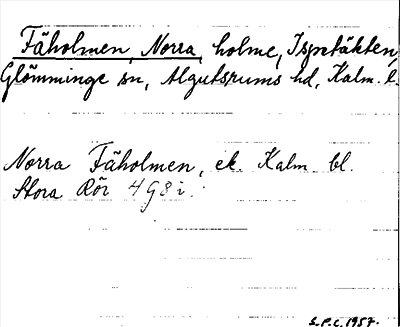 Fäholmen, Norra, holme, Ispetäkten,
Glömminge sn, Algutsrums hd, Kalm. l.
Norra Fäholmen, ek. Kalm. bl.
Stora Rör 4G8i.
S.P.C. 1957.